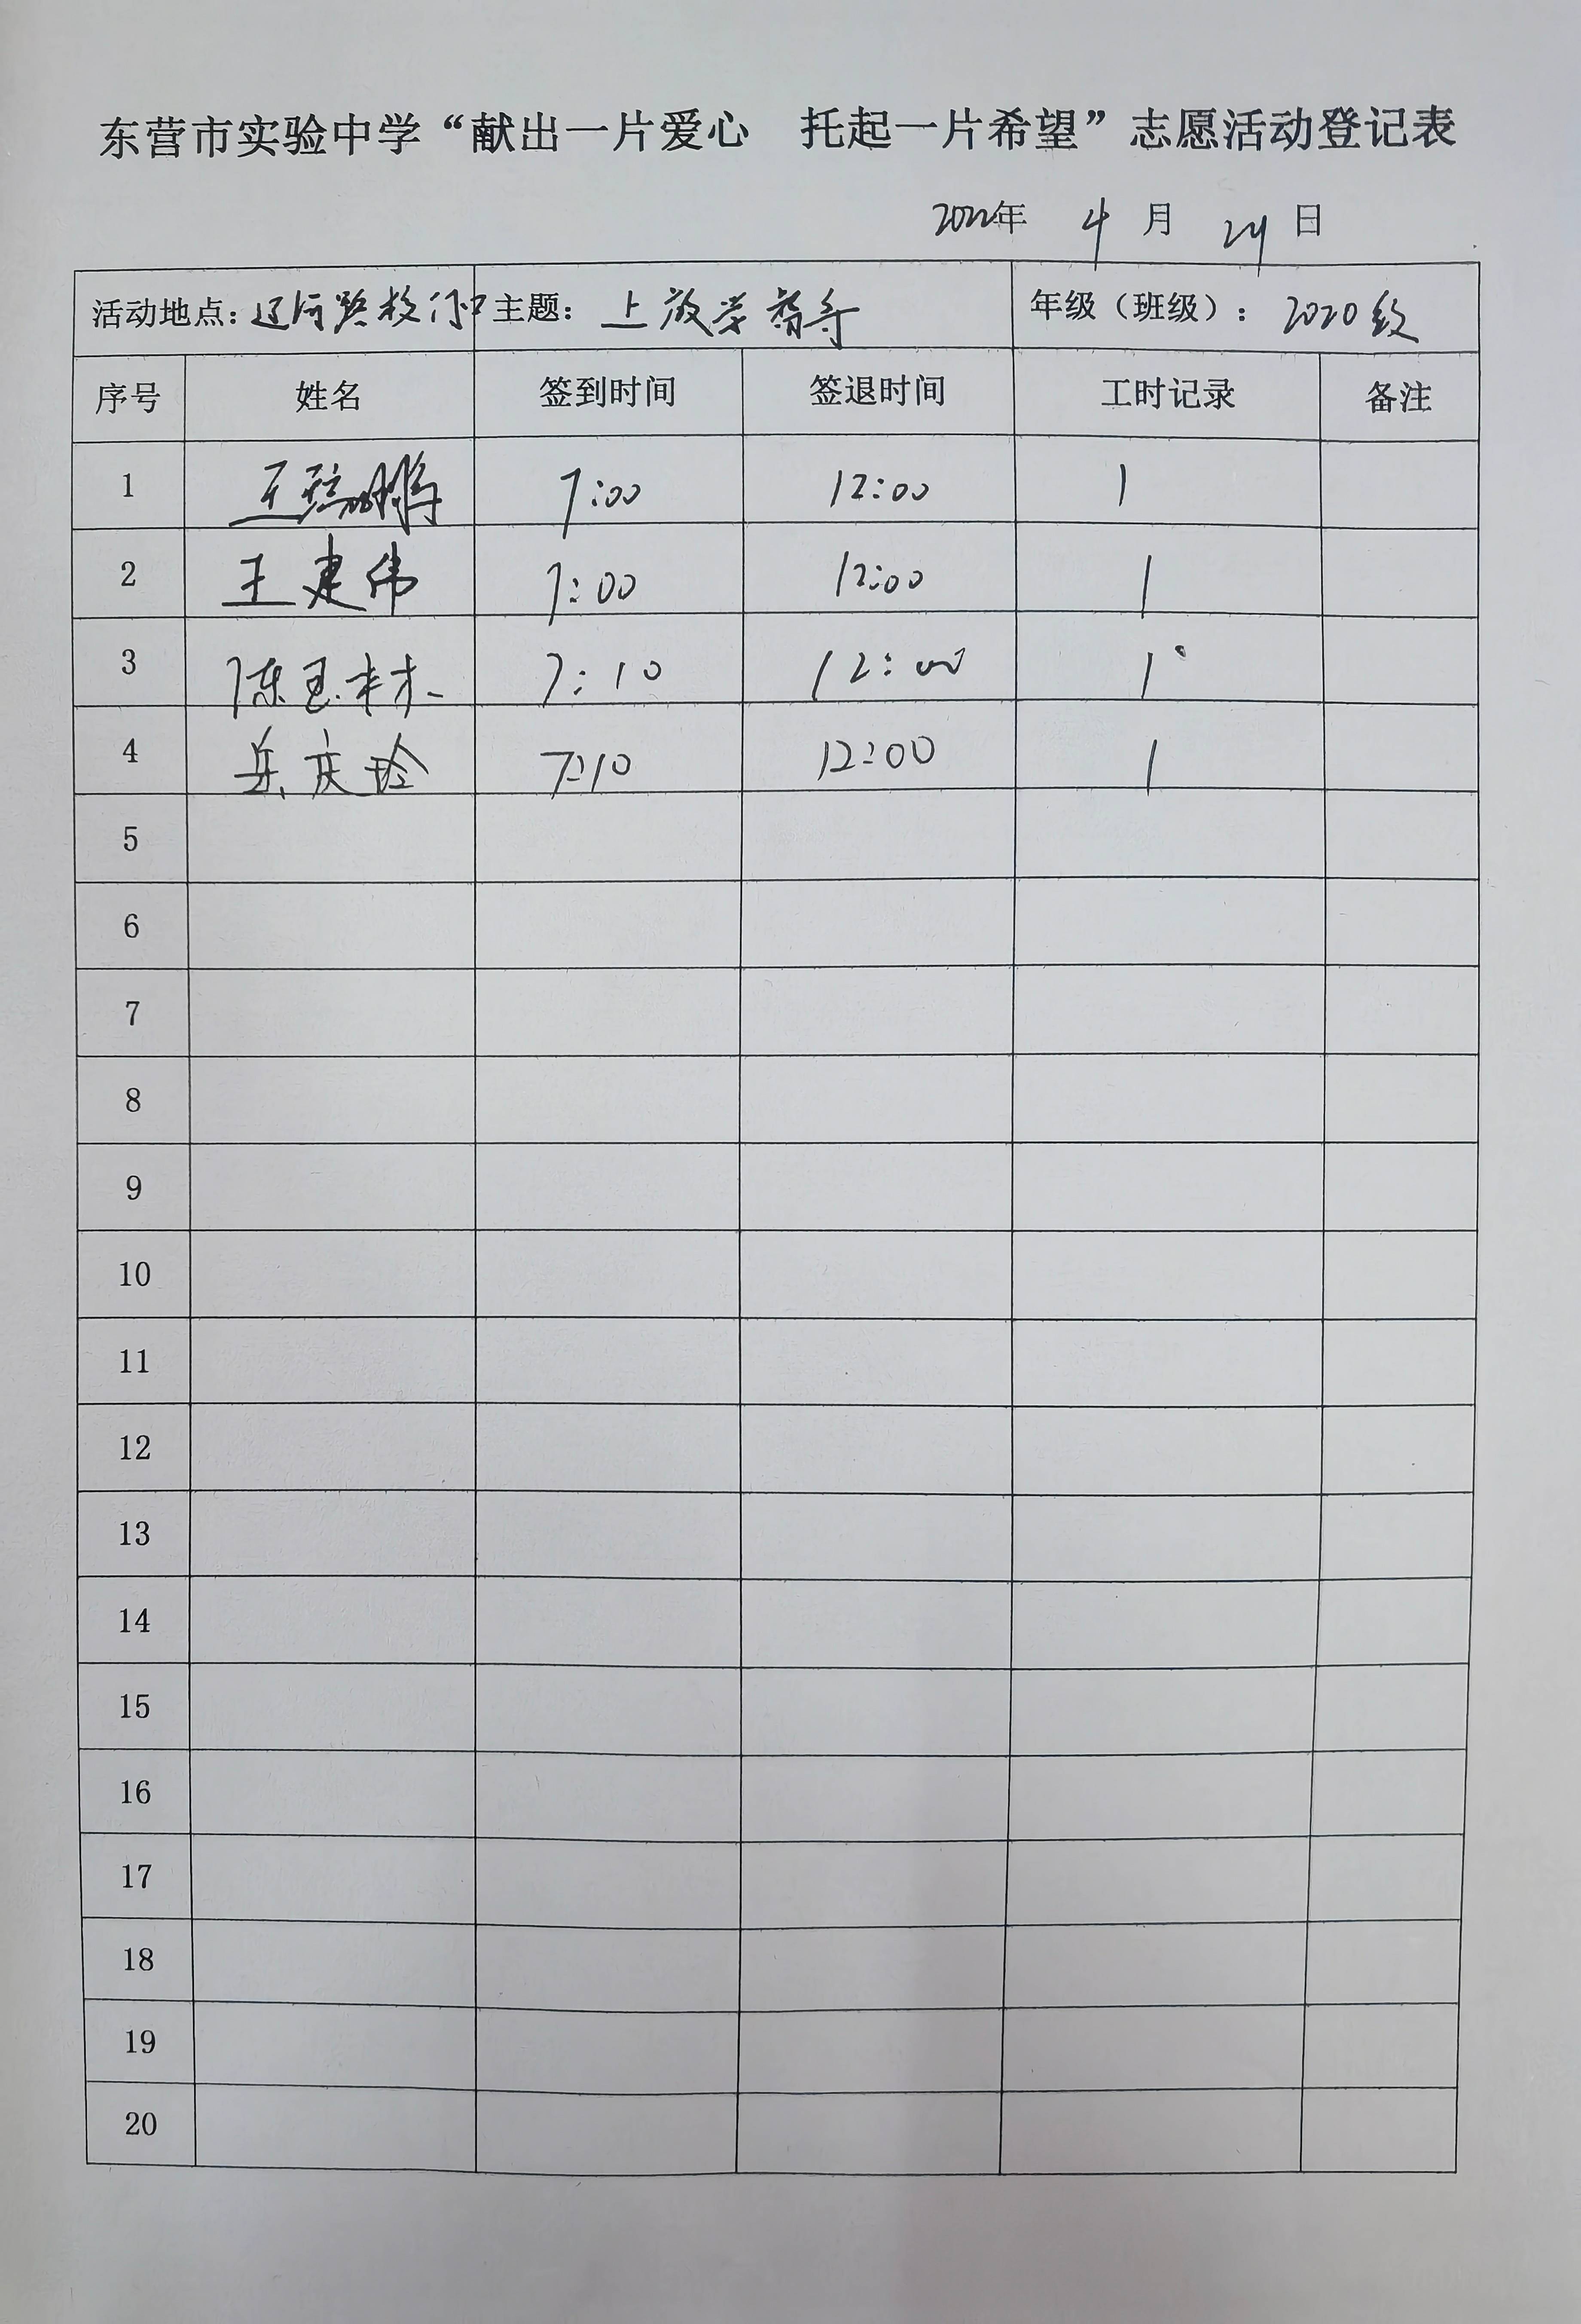 东营市实验中学“献出一片爱心 托起一片希望”志愿活动登记表
2022年 4 月 24 日
活动地点：辽河路校门口 主题： 上放学督导 年级（班级）： 2020级
序号 姓名 签到时间 签退时间 工时记录 备注
1 王瑞鹏 7:00 12:00 1
2 王建伟 7:00 12:00 1
3 陈玉林 7:10 12:00 1
4 岳庆玲 7:10 12:00 1
5
6
7
8
9
10
11
12
13
14
15
16
17
18
19
20